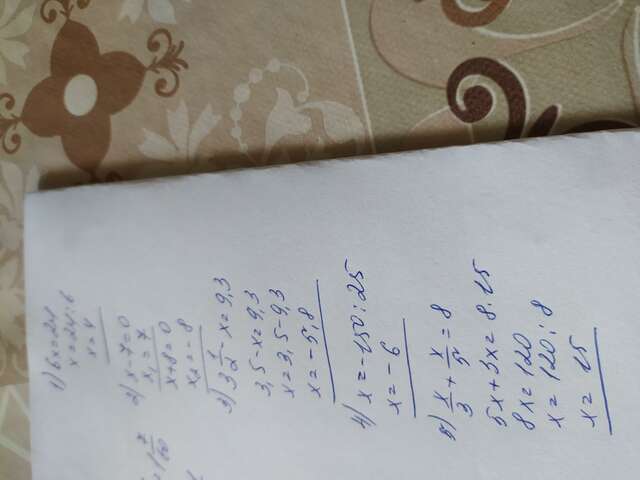 1) 6x=24
x=24:6
x=4
2) x-7=0
x₁=7
x+8=0
x₂=-8
3) 3 1/2 - x=9,3
3,5-x=9,3
x=3,5-9,3
x=-5,8
4) x=-150:25
x=-6
5) x/3 + x/5 = 8
5x+3x=8·15
8x=120
x=120:8
x=15